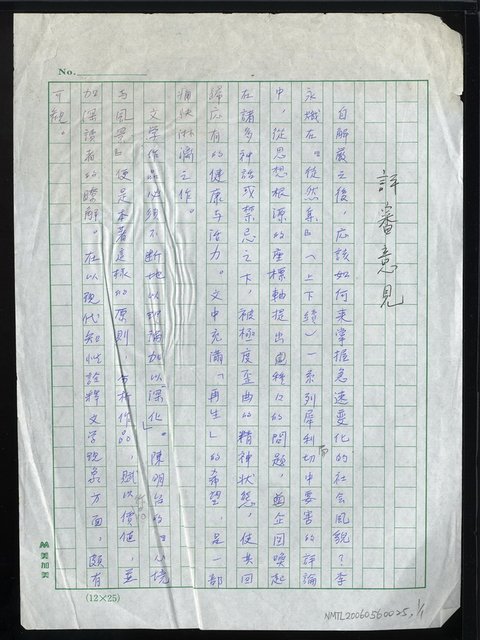 No.
評審意見
自解嚴之後，应該如何来掌握急速变化的社会風貌？李
永熾在『從然集』（上下続）一系列犀利而切中要害的評論
中，從思想根源的座標軸提出歯科口的問題，
在諸多神話或禁忌之下，被極度歪曲的精神状態，使其回
歸应有的健康与活力。文中充满「再生」的希望，是一部
痛快淋漓之作。
文学作品必须不断地以評論加以「深化」。陳明台的『心境
与風景』便是本著這樣的原則，分析作品，賦以價值，並
加深読者的瞭解。在以現代知性詮釋文学現象方面，頗有
可観。
美加美
(12×25)
NMTL20060560025, 1/1